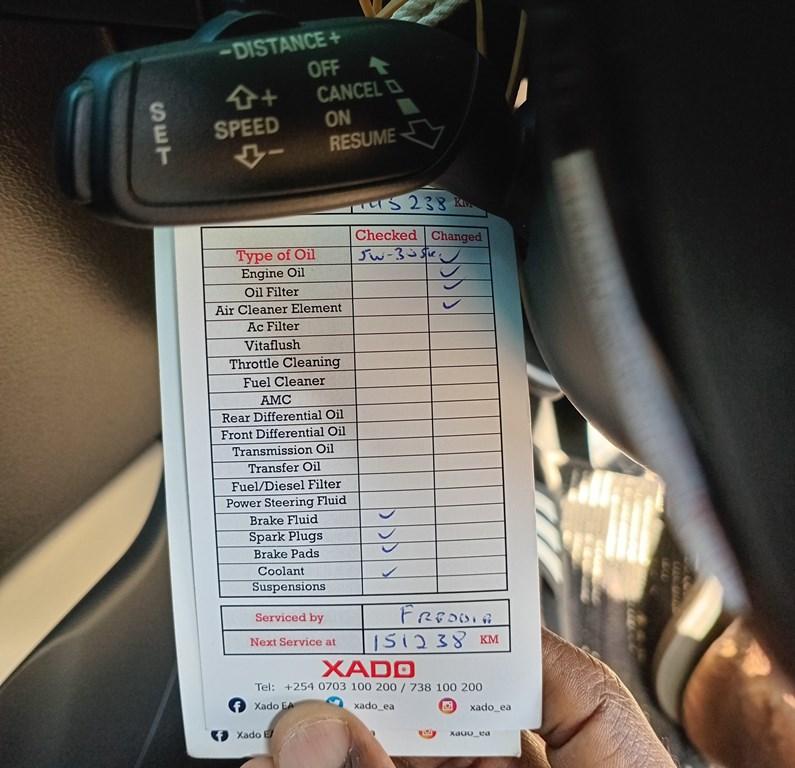 -DISTANCE+
OFF
CANCEL
SET
+
SPEED
ON
-
RESUME
145238 KM
Checked Changed
Type of Oil 5w-30
Engine Oil
Oil Filter
Air Cleaner Element
Ac Filter
Vitaflush
Throttle Cleaning
Fuel Cleaner
AMC
Rear Differential Oil
Front Differential Oil
Transmission Oil
Transfer Oil
Fuel/Diesel Filter
Power Steering Fluid
Brake Fluid
Spark Plugs
Brake Pads
Coolant
Suspensions
Serviced by FREDDIE
Next Service at 151238 KM
XADO
Tel: +254 0703 100 200 / 738 100 200
Xado EA xado_ea xado_ea
Xado EA xado_ea